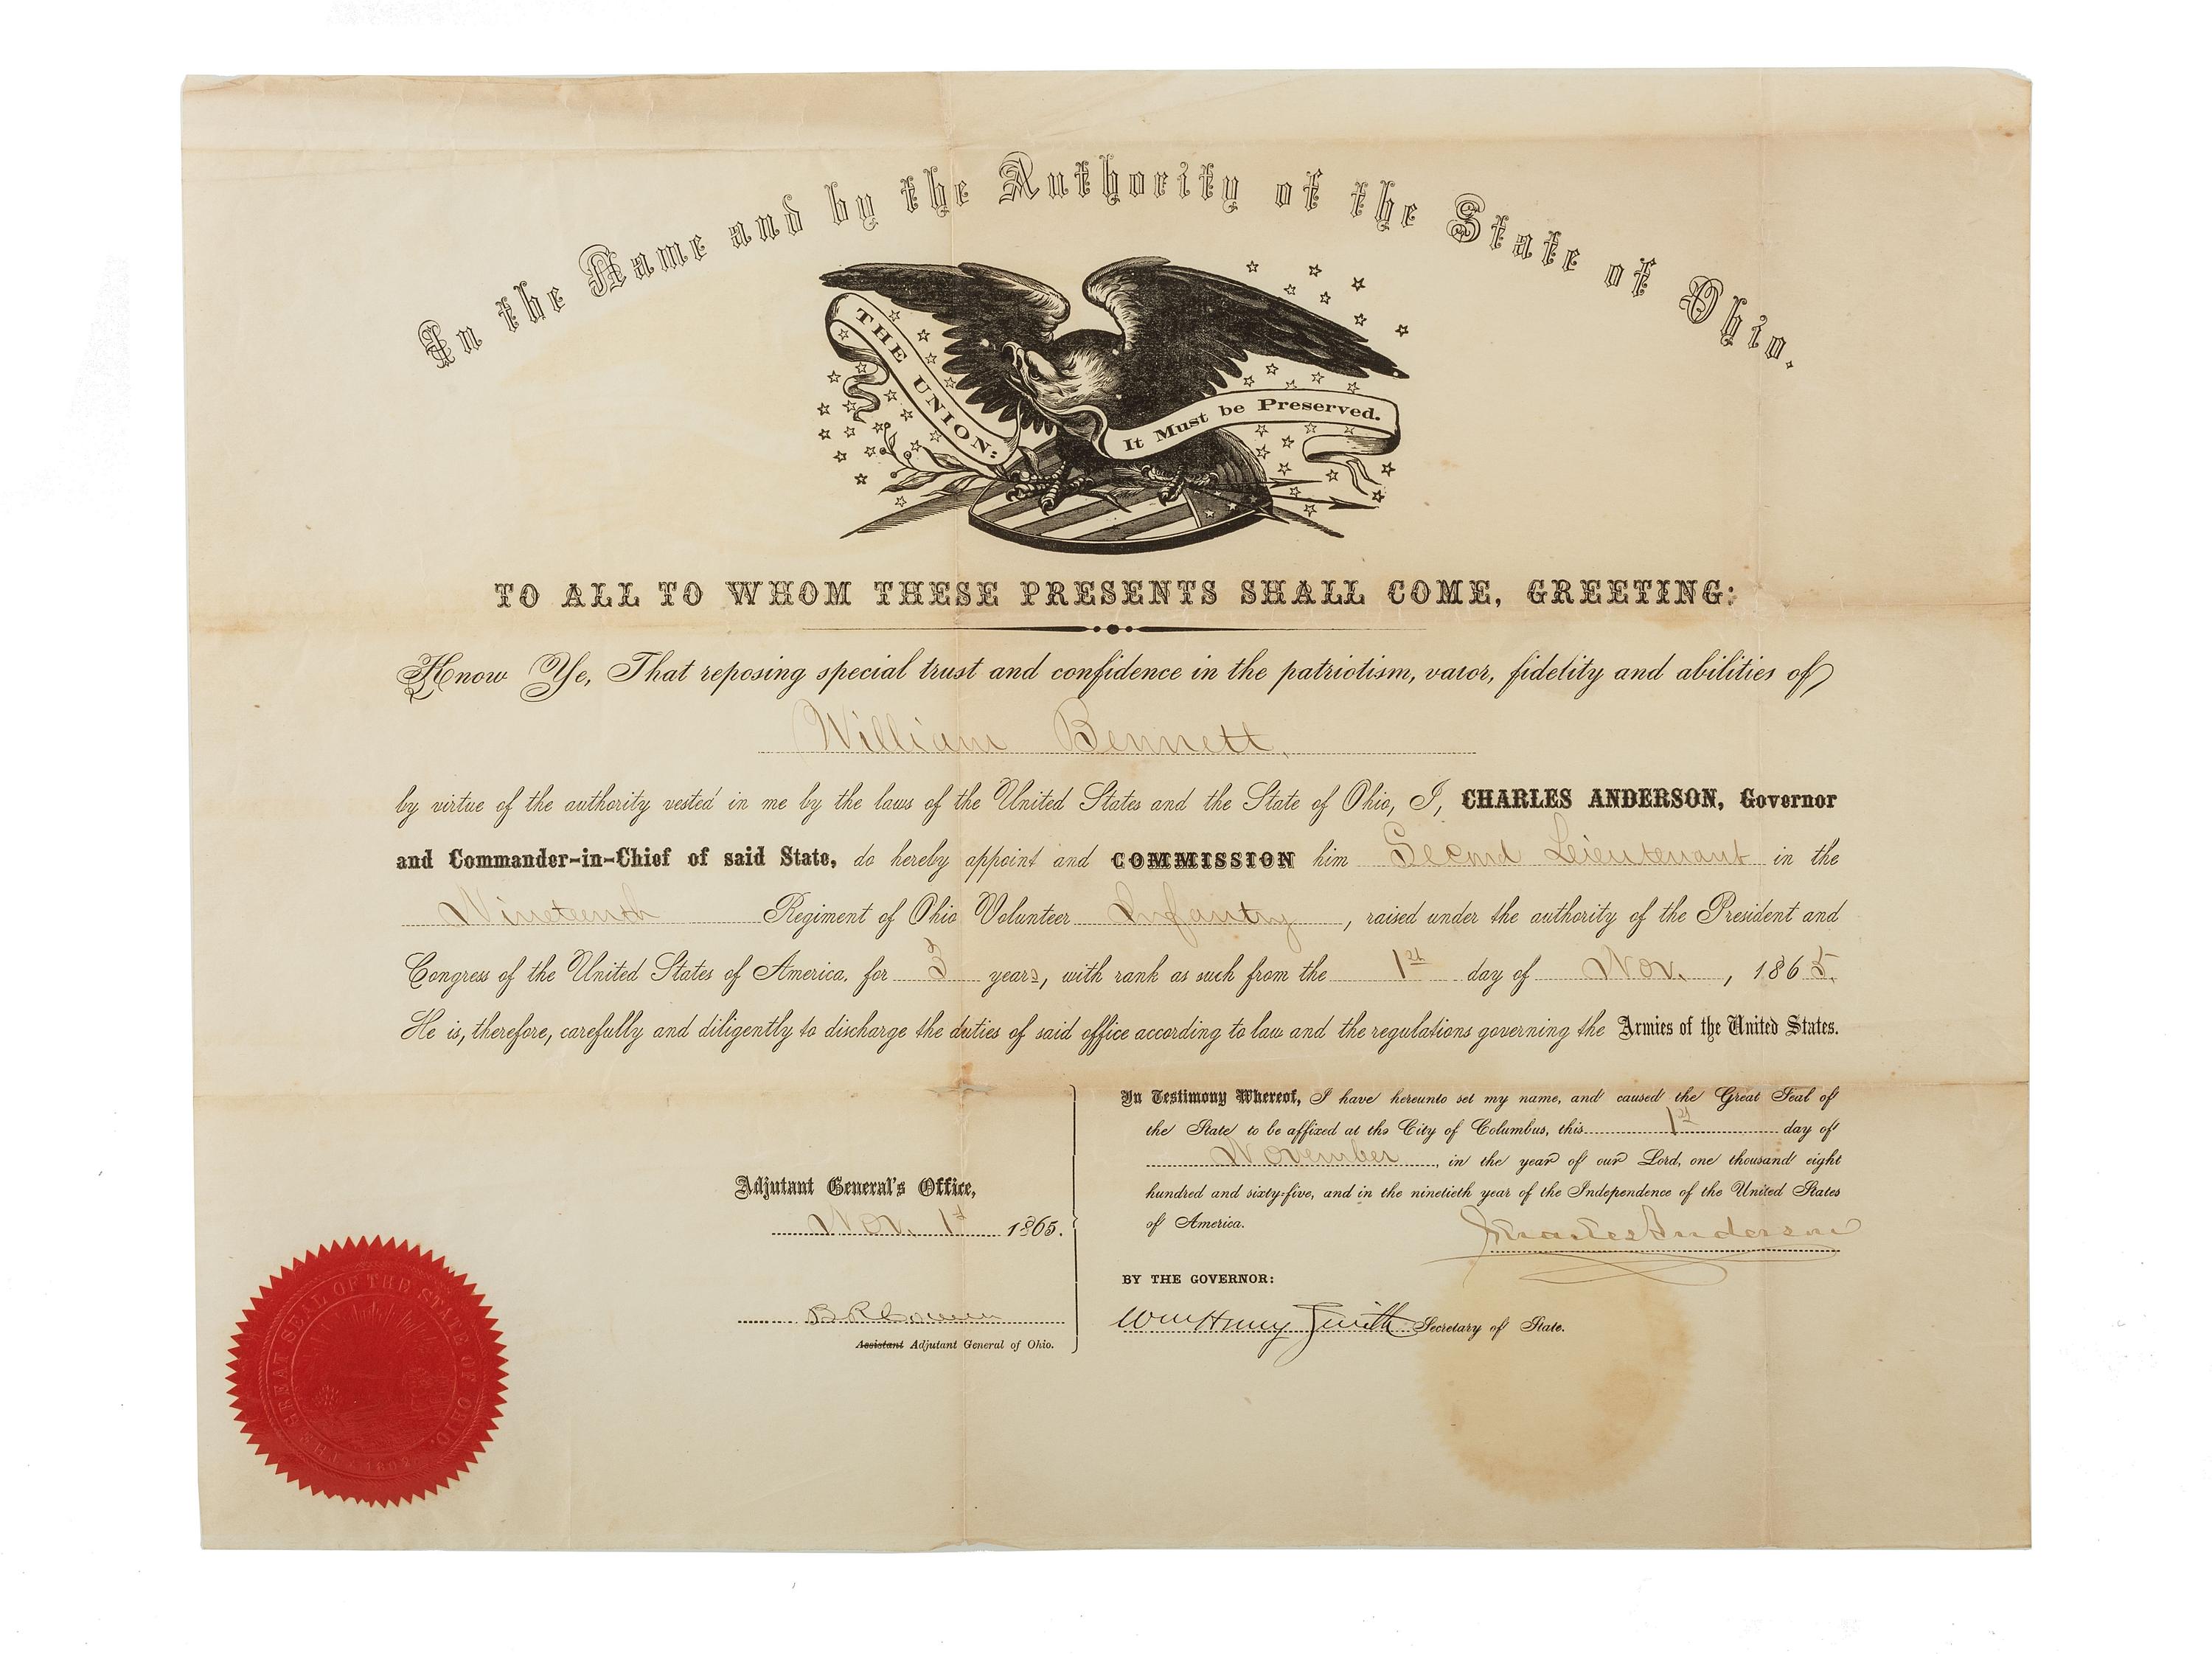 In the Name and by the Authority of the State of Ohio.
THE UNION:
It Must be Preserved.
TO ALL TO WHOM THESE PRESENTS SHALL COME, GREETING:
Know Ye, That reposing special trust and confidence in the patriotism, valor, fidelity and abilities of
William Bennett,
by virtue of the authority vested in me by the laws of the United States and the State of Ohio, I, CHARLES ANDERSON, Governor
and Commander-in-Chief of said State, do hereby appoint and COMMISSION him Second Leieutenant in the
Nineteenth Regiment of Ohio Volunteer Infantry, raised under the authority of the President and
Congress of the United States of America, for 3 years, with rank as such from the 1st day of Nov., 1865.
He is, therefore, carefully and diligently to discharge the duties of said office according to law and the regulations governing the Armies of the United States.
In Testimony Whereof, I have hereunto set my name, and caused the Great Seal of
the State to be affixed at the City of Columbus, this 1st day of
November, in the year of our Lord, one thousand eight
hundred and sixty-five, and in the ninetieth year of the Independence of the United States
of America.
Charles Anderson
BY THE GOVERNOR:
Wm Henry Smith Secretary of State.
Adjutant General's Office,
Nov. 1st 1865.
B R Cowen
Assistant Adjutant General of Ohio.
GREAT SEAL OF THE STATE OF OHIO.
1802